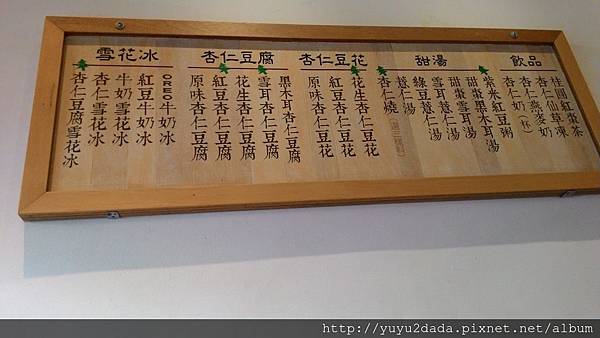 飲品
桂圓紅棗茶
杏仁仙草凍
杏仁燕麥奶
杏仁奶(杯)
甜湯
紫米紅豆粥
甜棗黑木耳湯
甜棗雪耳湯
雪耳薏仁湯
綠豆薏仁湯
薏仁湯
杏仁燒
杏仁豆花
花生杏仁豆花
紅豆杏仁豆花
原味杏仁豆花
杏仁豆腐
黑木耳杏仁豆腐
雪耳杏仁豆腐
花生杏仁豆腐
紅豆杏仁豆腐
原味杏仁豆腐
雪花冰
OREO牛奶冰
紅豆牛奶冰
牛奶雪花冰
杏仁雪花冰
杏仁豆腐雪花冰
http://yuyu2dada.pixnet.net/album